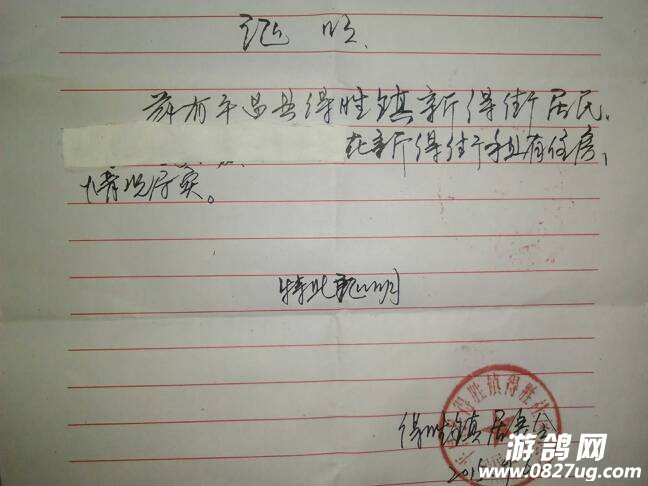 证明
兹有平昌县得胜镇新得街居民,
在新得街手上有住房,
情况属实。
特此证明
得胜镇居委会
2015年
游鸽网
www.0827ug.com